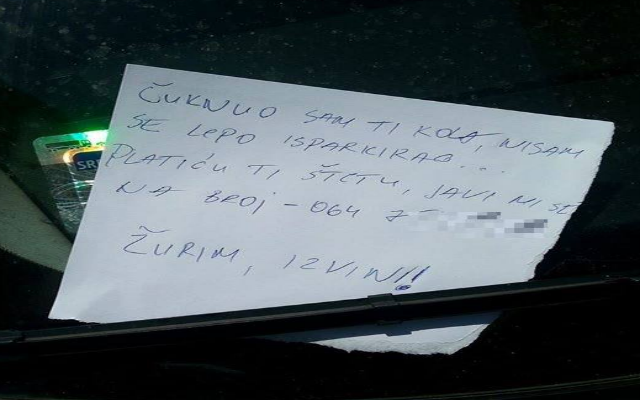 ČUKNUO SAM TI KOLA, NISAM
SE LEPO ISPARKIRAO...
PLATIĆU TI ŠTETU, JAVI MI SE
NA BROJ - 064
ŽURIM, IZVINI!!
SR